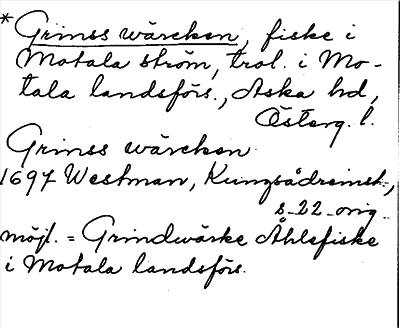 * Grinss wärcken, fiske i
Motala ström, trol. i Mo-
tala landsförs., Aska hd,
Österg. l.
Grinss wärcken
1697 Westman, Kungsådreinst.,
s. 22 orig.
möjl. = Grindwärke Åhlefiske
i Motala landsförs.